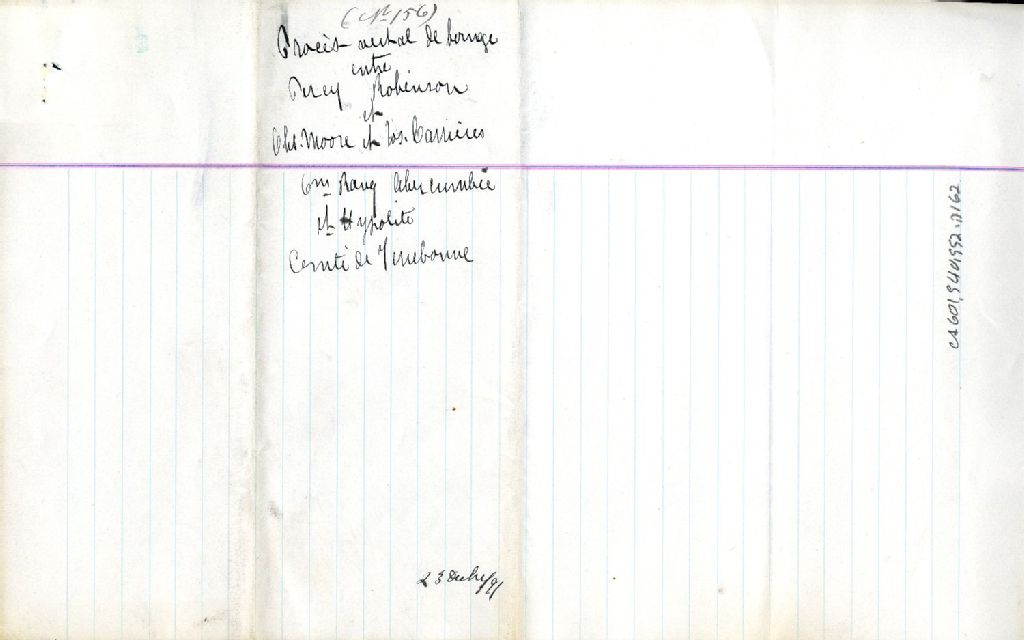 (No 156)
Procès verbal de bornage
entre
Percy Robinson
et
Chs. Moore et Jos. Carrières
6m Rang Abercrombie
et Hypolite
Comté de Terrebonne
23 /91
CA601,S40,SS2,D162